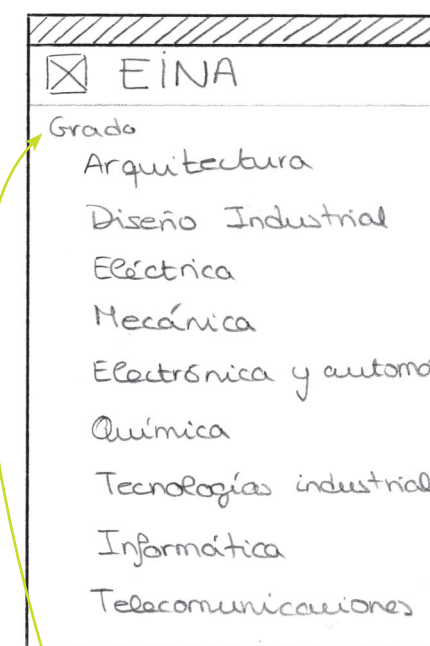 EINA
Grado
Arquitectura
Diseño Industrial
Eléctrica
Mecánica
Electrónica y automá
Química
Tecnologías industrial
Informática
Telecomunicaciones